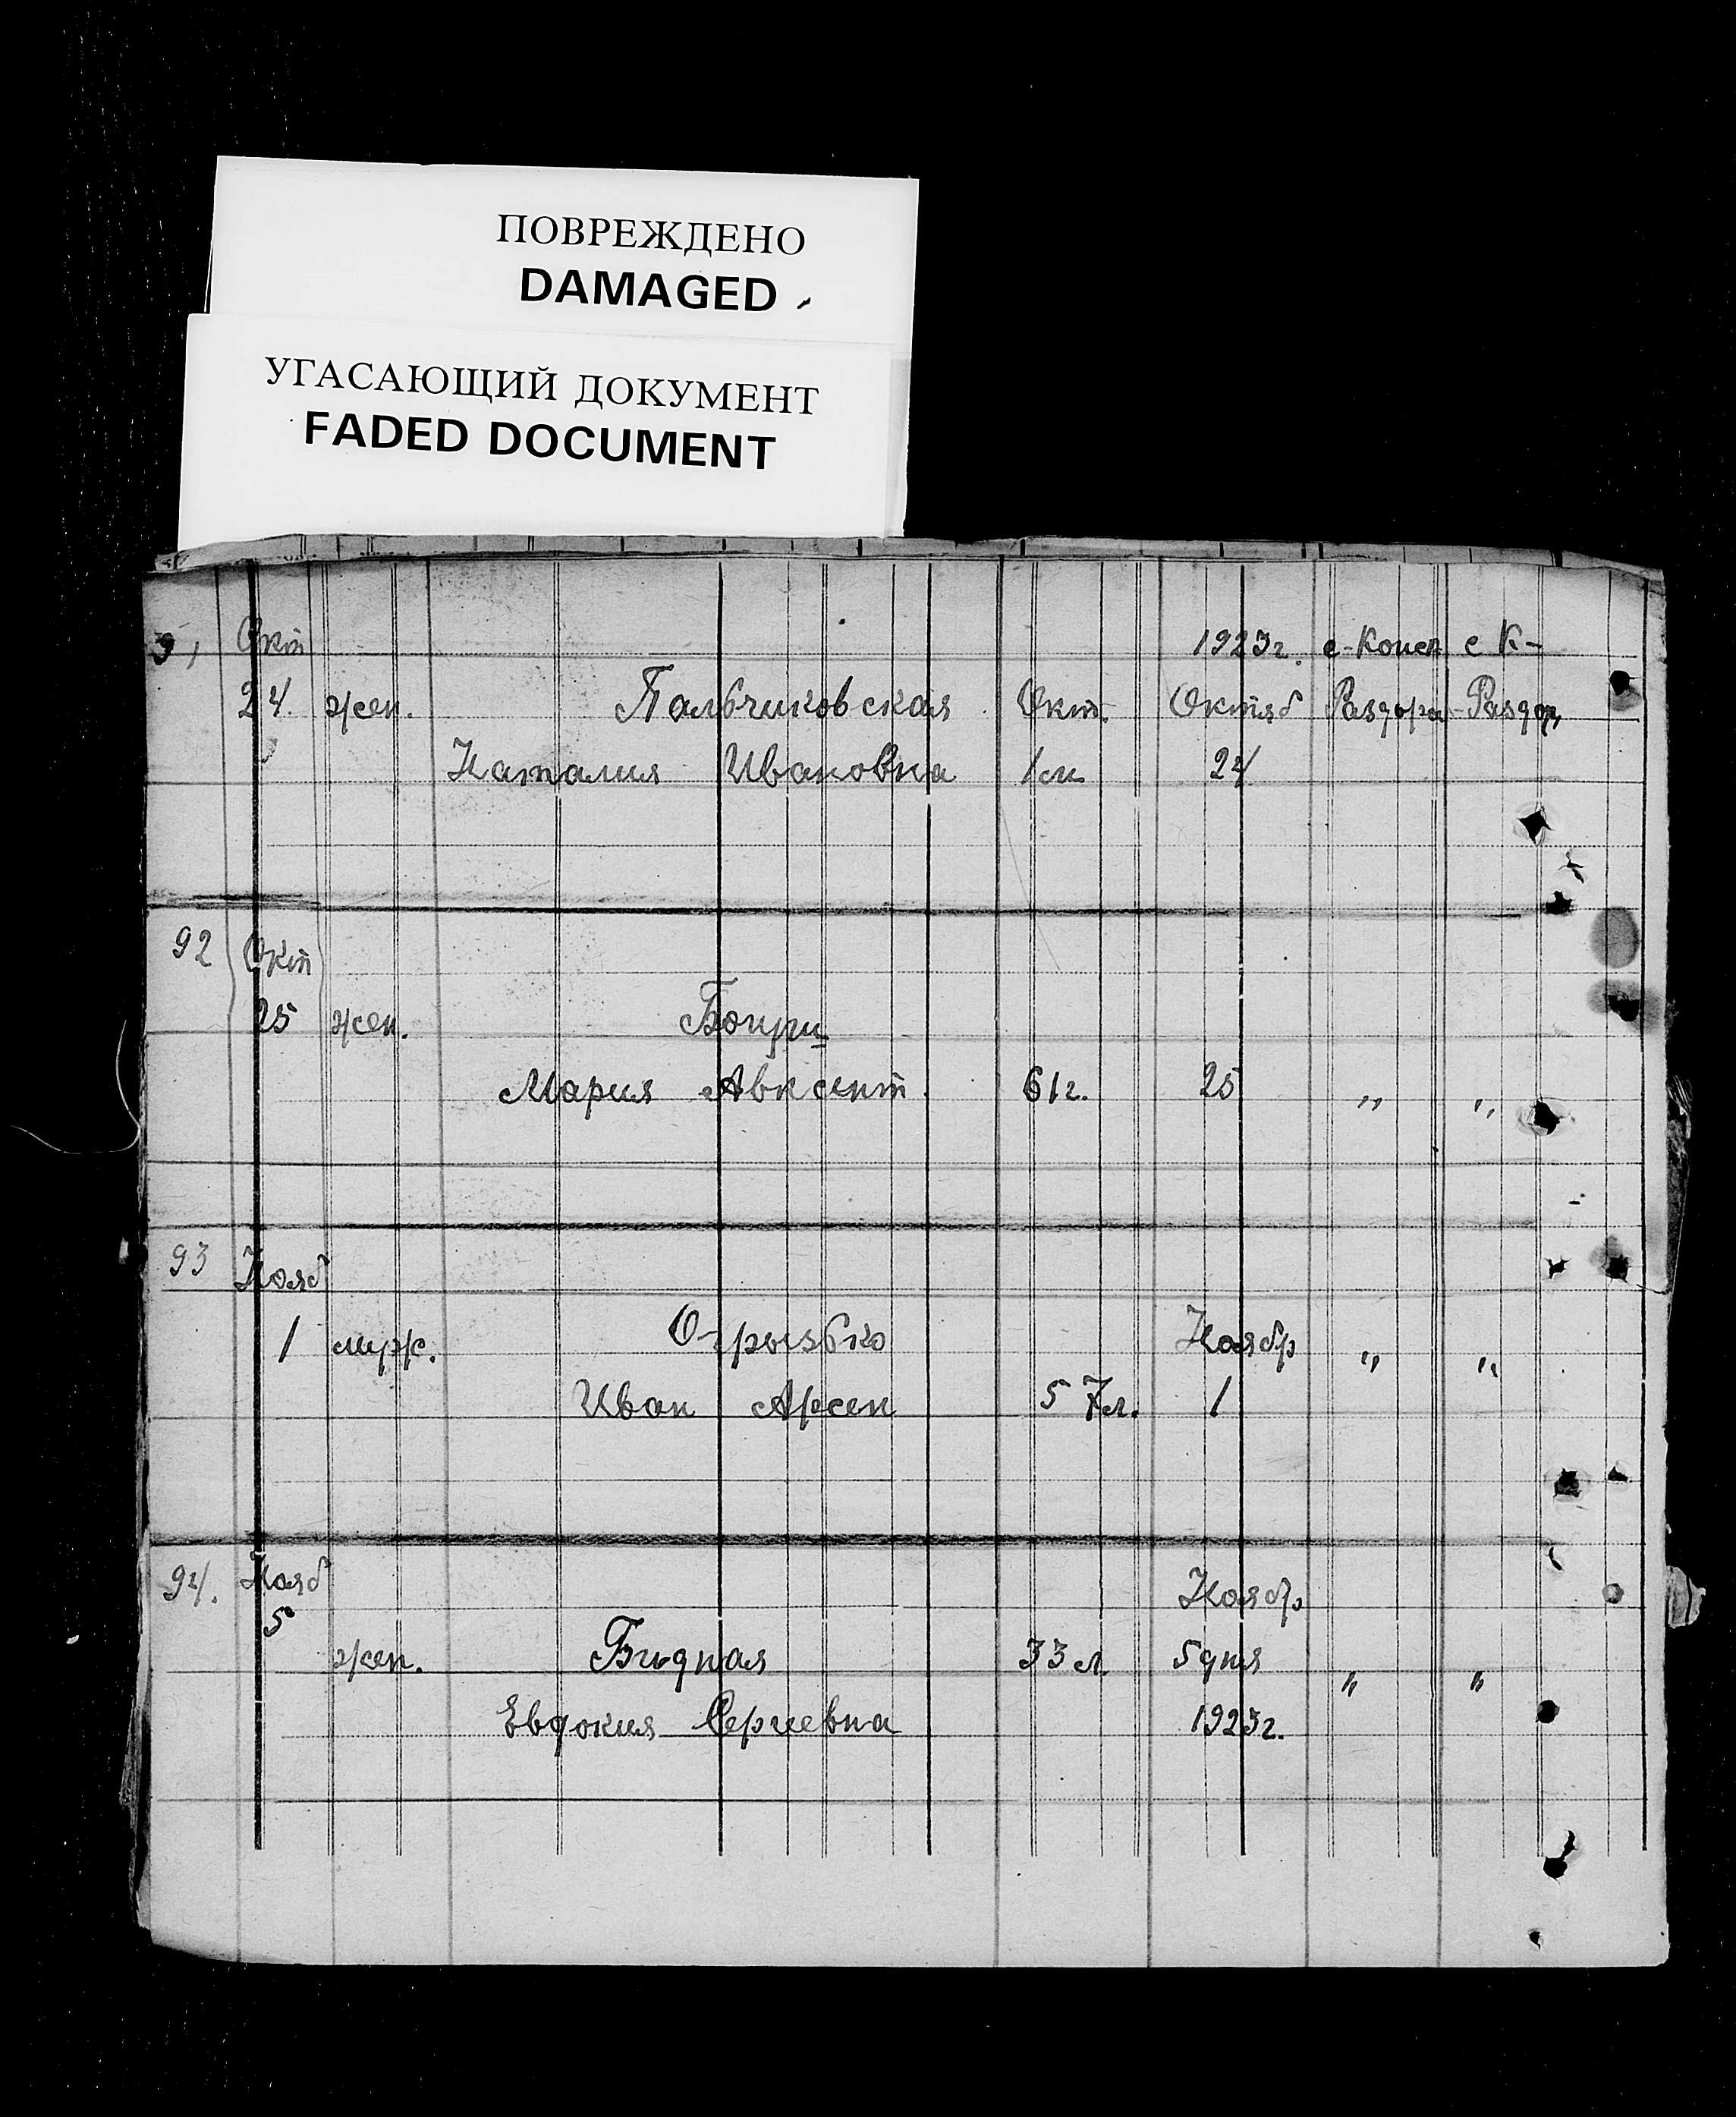 ПОВРЕЖДЕНО
DAMAGED
УГАСАЮЩИЙ ДОКУМЕНТ
FADED DOCUMENT
Окт 1923г. с-Конск с К-
24. жен. Пальчиковская Окт. Октяб Раздора Раздор
Наталия Ивановна 1м 24
92 Окт
25 жен.
Мария Авксент. 61г. 25 " "
93 Нояб
1 муж. Огрызько Ноябр " "
Иван Арсен 57л. 1
94. Нояб Ноябр
5
жен. Бидная 33л. 5 дня " "
Евдокия Сергеевна 1923г.